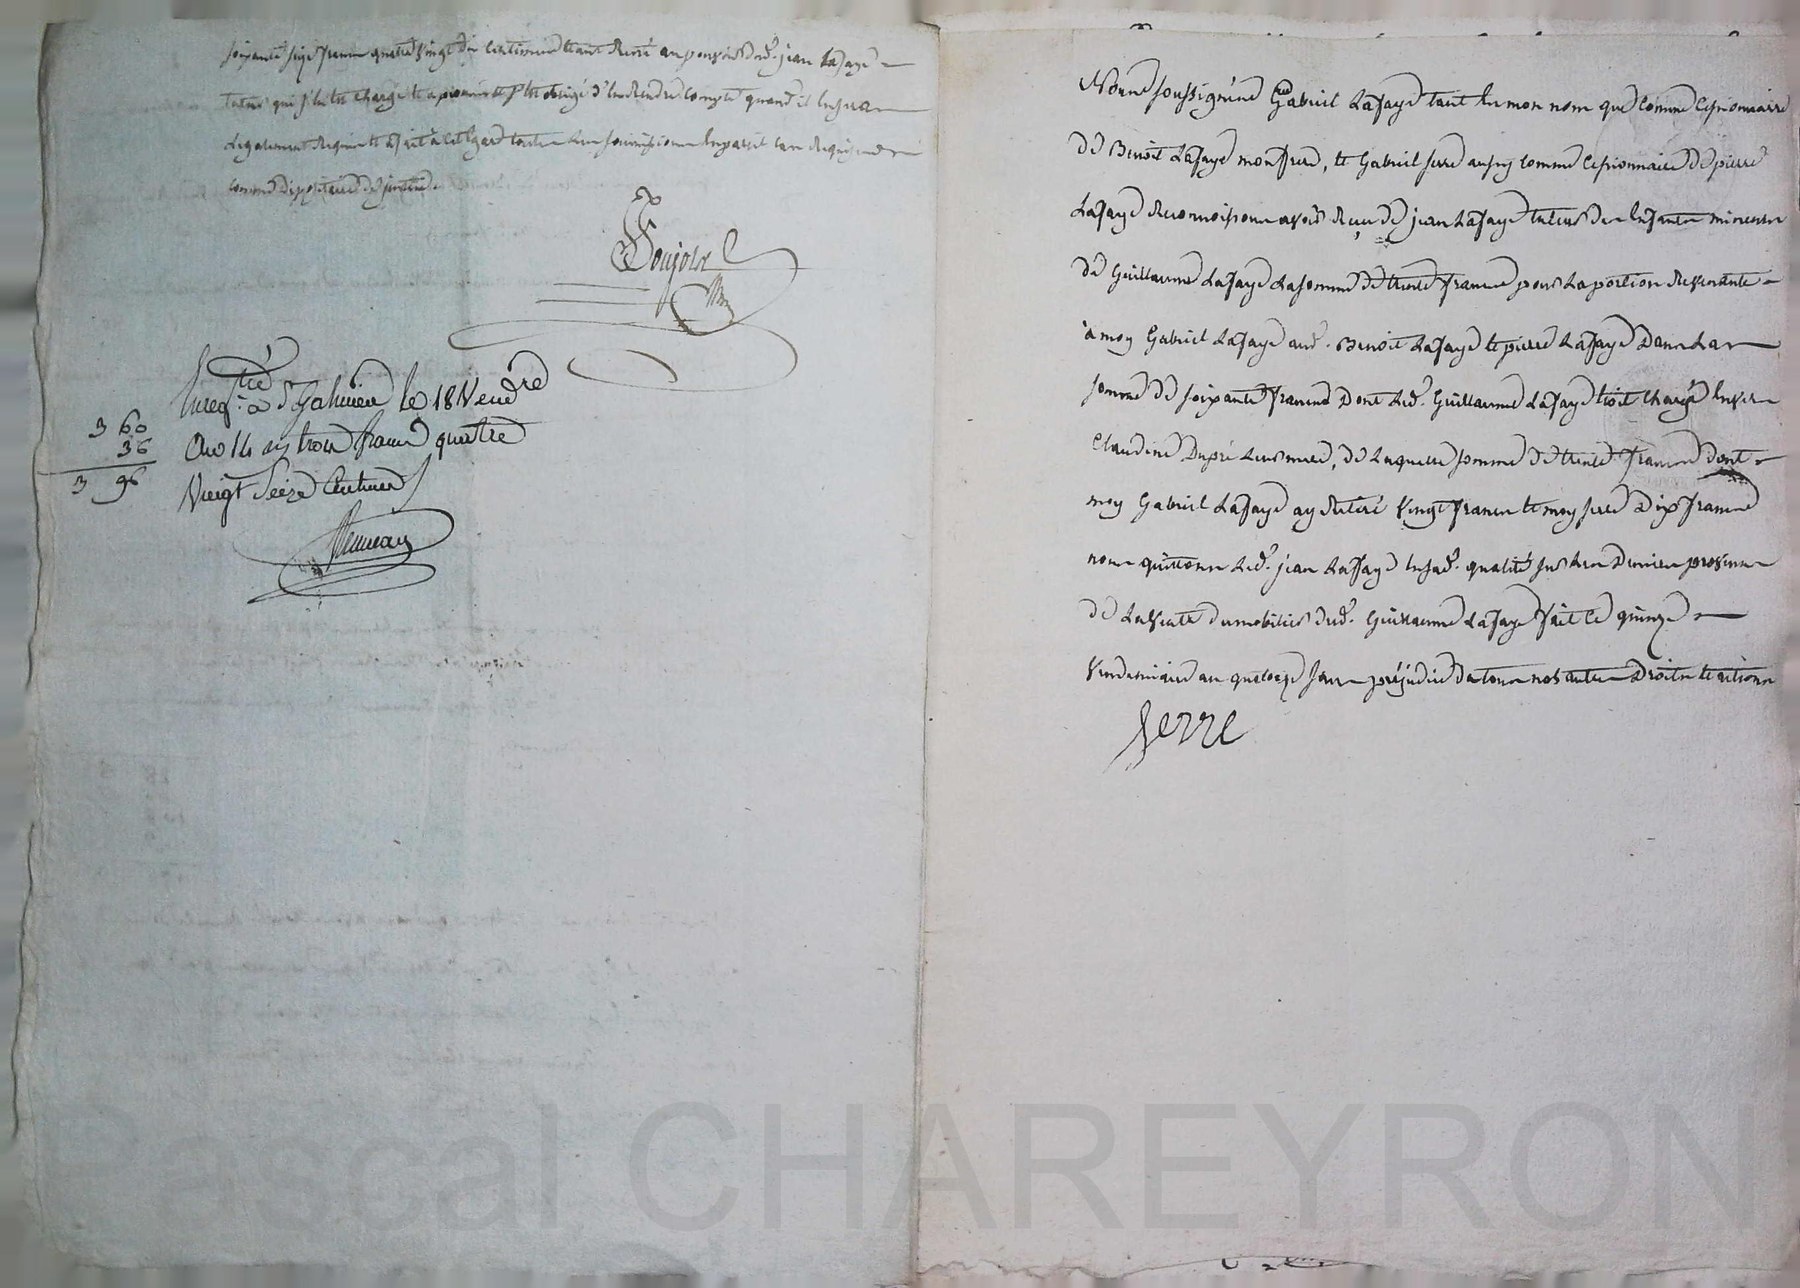 soixante seize francs quatre vingt dix centimes étant resté au pouvoir dud. jean Lafaye
tuteur qui s'en est chargé et a promis et s'est obligé d'en rendre compte quand il en sera
légalement requis et a fait à cet égard toutes les soumissions en pareil cas requises
comme dépositaire de justice.
Poujolx
Enreg.tré à St Galmier le 18 Vend.re
an 14 reçu trois francs quatre
Vingt Seize Centimes
3 60
36
3 96
Nous soussignés Gabriel Lafaye tant en mon nom que comme cessionnaire
de Benoit Lafaye mon frere, et Gabriel serre aussy comme cessionnaire de pierre
Lafaye reconnoissons avoir reçu de jean Lafaye tuteur des Enfants mineurs
de Guillaume Lafaye la somme de trente francs pour la portion revenante
à moy Gabriel Lafaye aud. Benoit Lafaye et pierre Lafaye Dans la
somme de soixante francs Dont led. Guillaume Lafaye étoit chargé Envers
Claudine Dupré leur mere, de laquelle somme de trente francs dont
moy Gabriel Lafaye ay retiré vingt francs et moy serre Dix francs
nous quittons led. jean Lafaye en sad. qualité sur les Deniers provenus
de la vente du mobilier dud. Guillaume Lafaye fait le quinze
vendemiaire an quatorze sans préjudice de tous nos autres Droits et actions
Serre
Pascal CHAREYRON